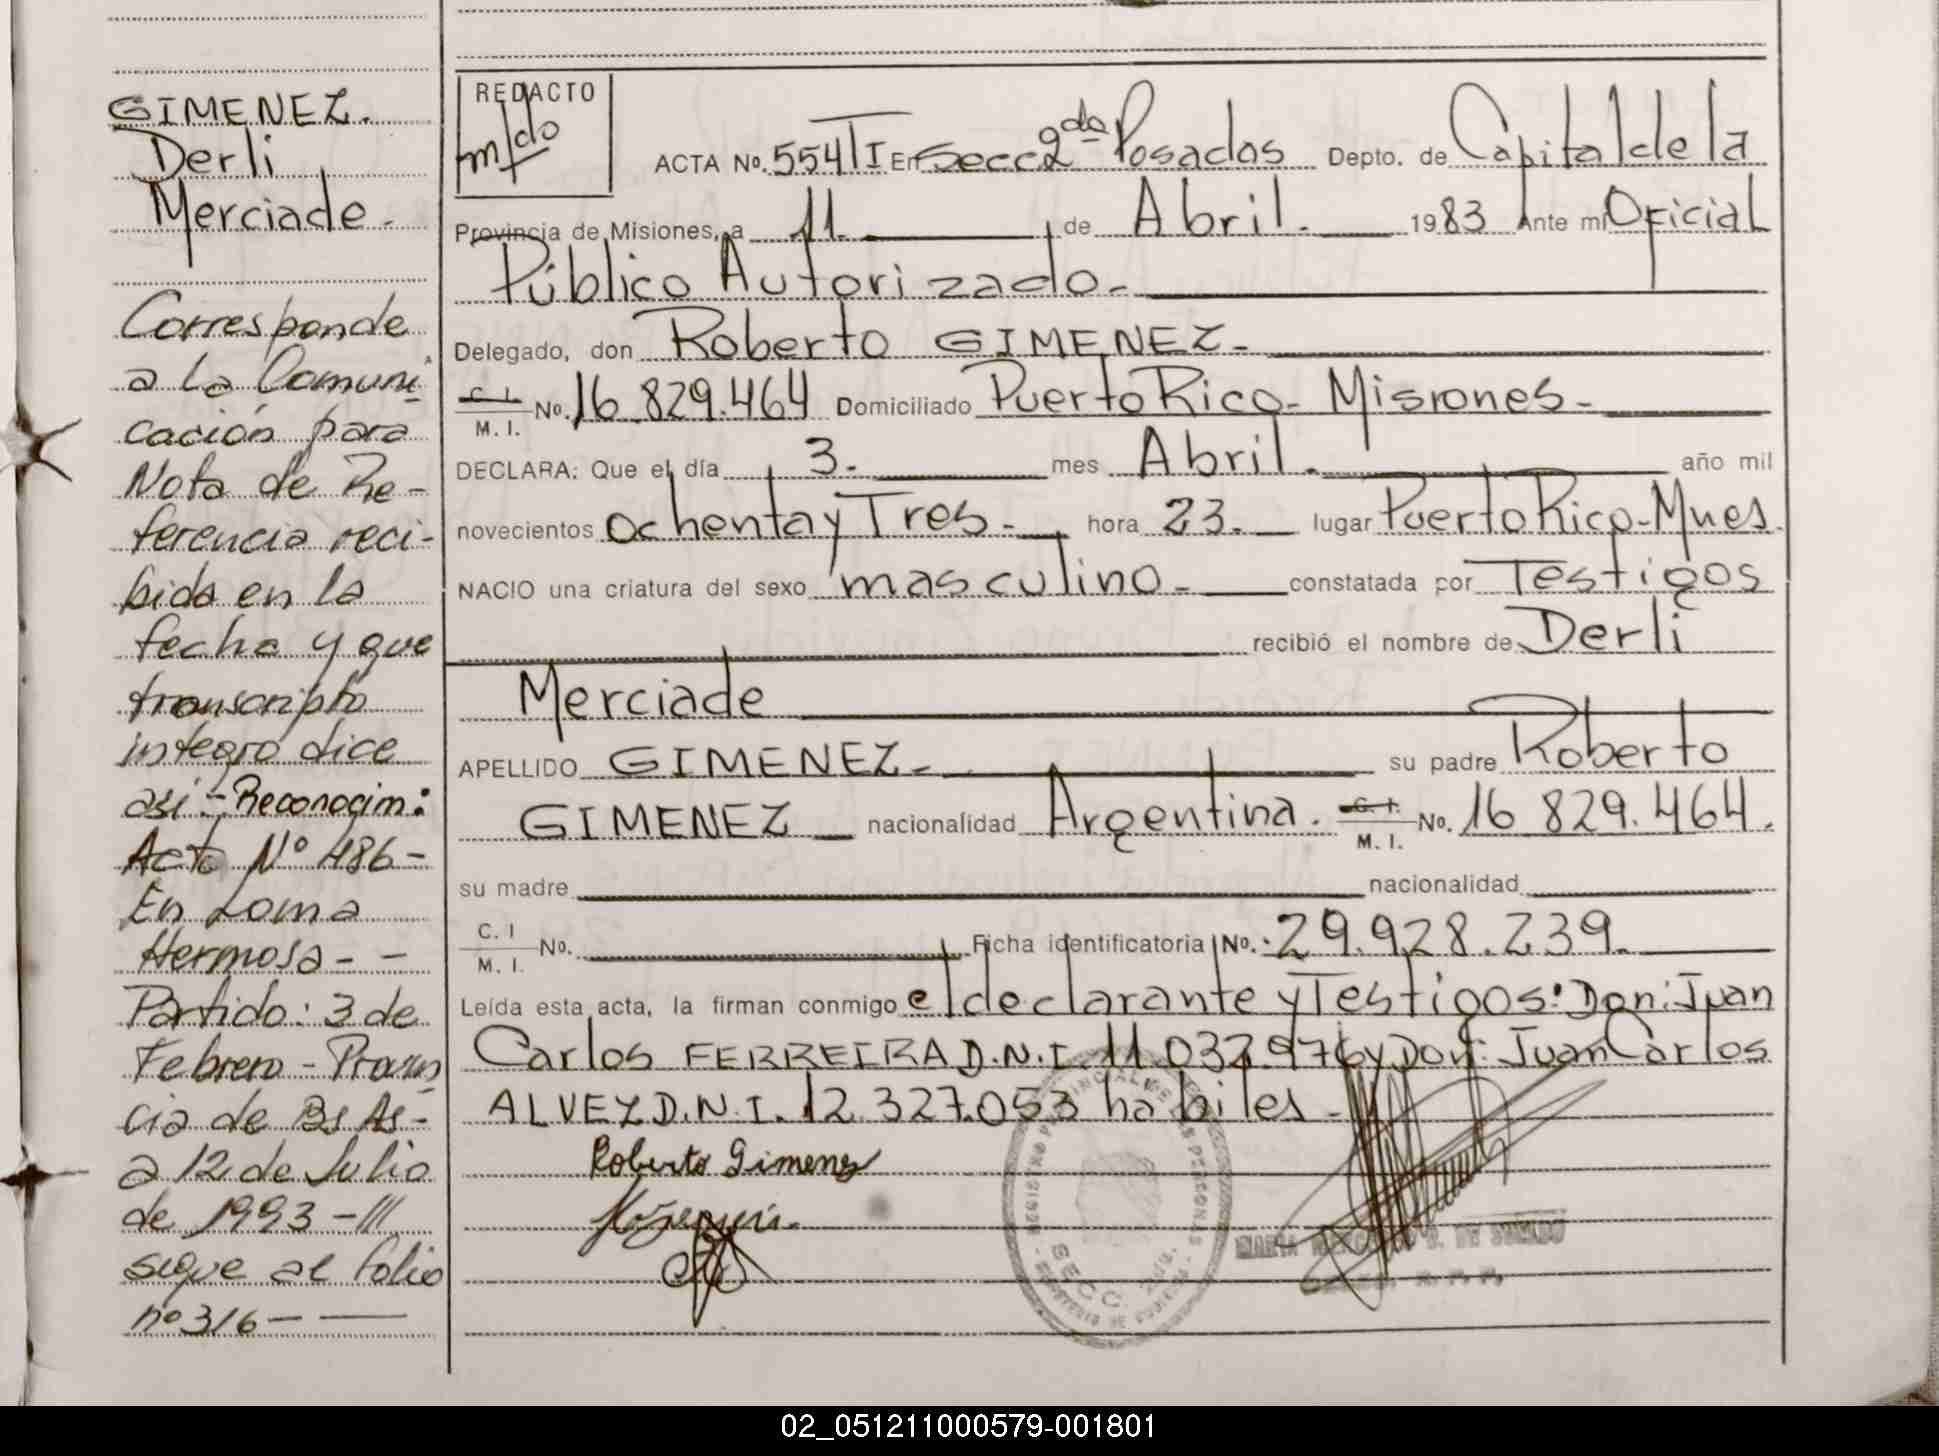 GIMENEZ.
Derli
Merciade.-
Corresponde
a la Comuni
cación para
Nota de Re-
ferencia reci-
bida en la
fecha y que
transcripto
integro dice
asi:- Reconocim:
Acta Nº 486-
En Loma
Hermosa- -
Partido: 3 de
Febrero - Provin
cia de Bs As-
a 12 de Julio
de 1993 -///
sigue al folio
nº 316- —
REDACTO
m/do
ACTA No. 554 TI En Secc 2da Posadas Depto. de Capital de la
Provincia de Misiones, a 11. de Abril. 1983 Ante mi Oficial
Público Autorizado.-
Delegado, don Roberto GIMENEZ.-
C. I. / M. I. No. 16.829.464 Domiciliado Puerto Rico- Misiones-
DECLARA: Que el día 3. mes Abril. año mil
novecientos ochenta y Tres.- hora 23. lugar Puerto Rico-Mnes.
NACIO una criatura del sexo masculino.- constatada por Testigos
recibió el nombre de Derli
Merciade
APELLIDO GIMENEZ.- su padre Roberto
GIMENEZ nacionalidad Argentina. C. I. / M. I. No. 16.829.464.
su madre nacionalidad
C. I / M. I. No. Ficha identificatoria No. 29.928.239.
Leída esta acta, la firman conmigo el declarante y Testigos: Don: Juan
Carlos FERREIRA D.N.I. 11.032.976 y Don: Juan Carlos
ALVEZ D.N.I. 12.327.053 habiles.-
Roberto Gimenez
REGISTRO PROVINCIAL DE LAS PERSONAS
SECC. 2da.
MARIA
02_051211000579-001801